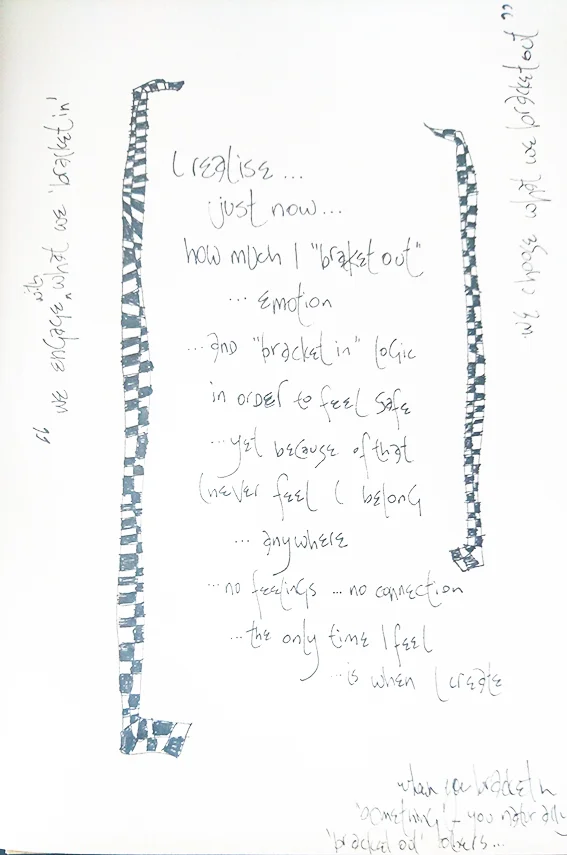 “ we engage with what we 'bracket in'
I realise ...
just now...
how much I "braket out"
... emotion
... and "bracket in" logic
in order to feel safe
... yet because of that
I never feel I belong
... anywhere
... no feelings ... no connection
... the only time I feel
... is when I create
we choose what we bracket out ”
when we bracket in
'something' - you naturally
'bracket out' others...